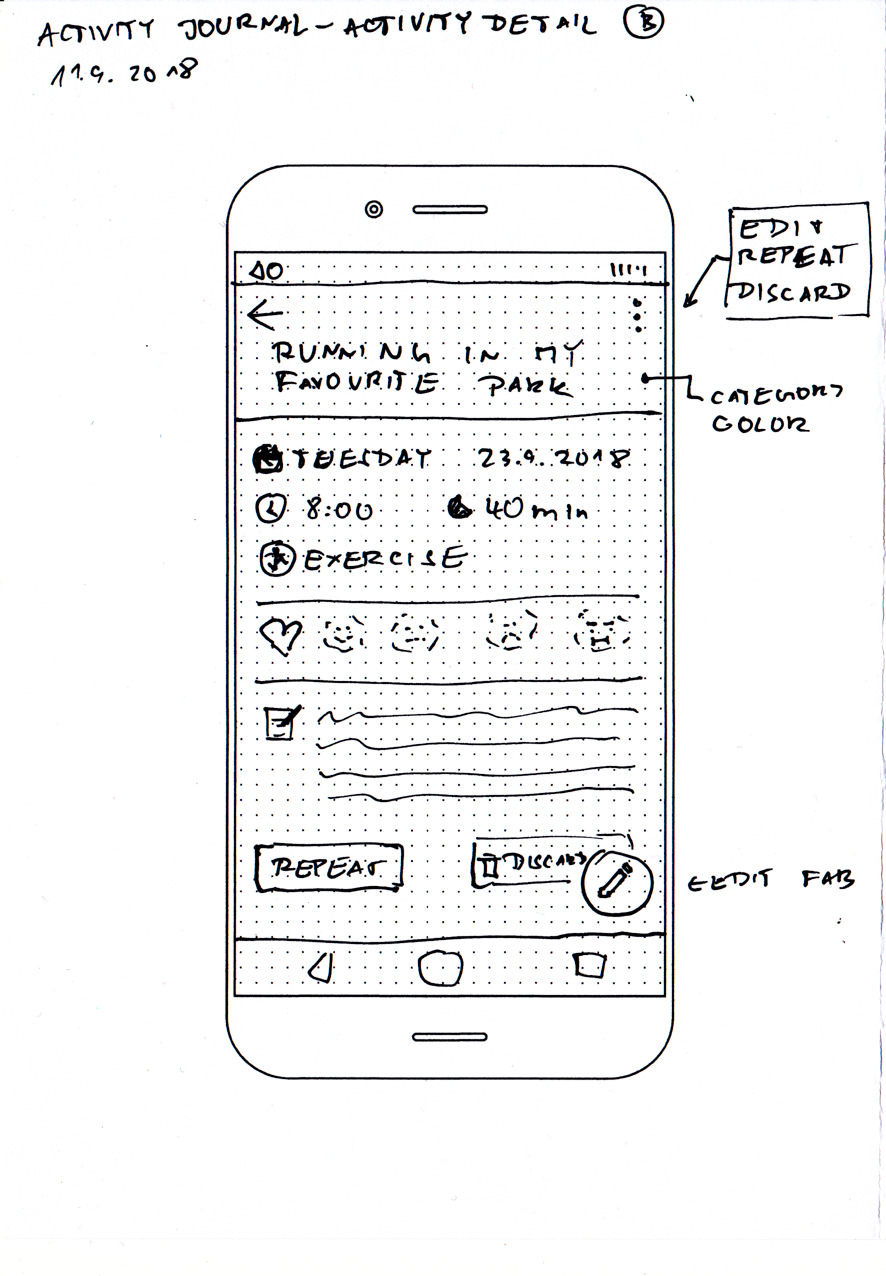 ACTIVITY JOURNAL - ACTIVITY DETAIL B
11.9. 2018
EDIT
REPEAT
DISCARD
RUNNING IN MY
FAVOURITE PARK
CATEGORY
COLOR
TUESDAY 23.9.2018
8:00 40 min
EXERCISE
REPEAT
DISCARD
EEDIT FAB